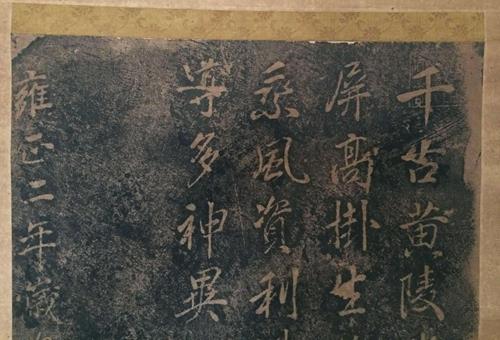 千古黄陵
屏高掛生
乘風資利
學多神異
雍正二年歲